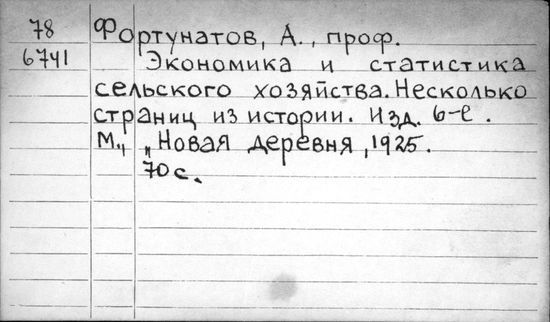 78 Фортунатов, А., проф.
6741 Экономика и статистика
сельского хозяйства. Несколько
страниц из истории. Изд. 6-е.
М., „Новая деревня, 1925.
70 с.